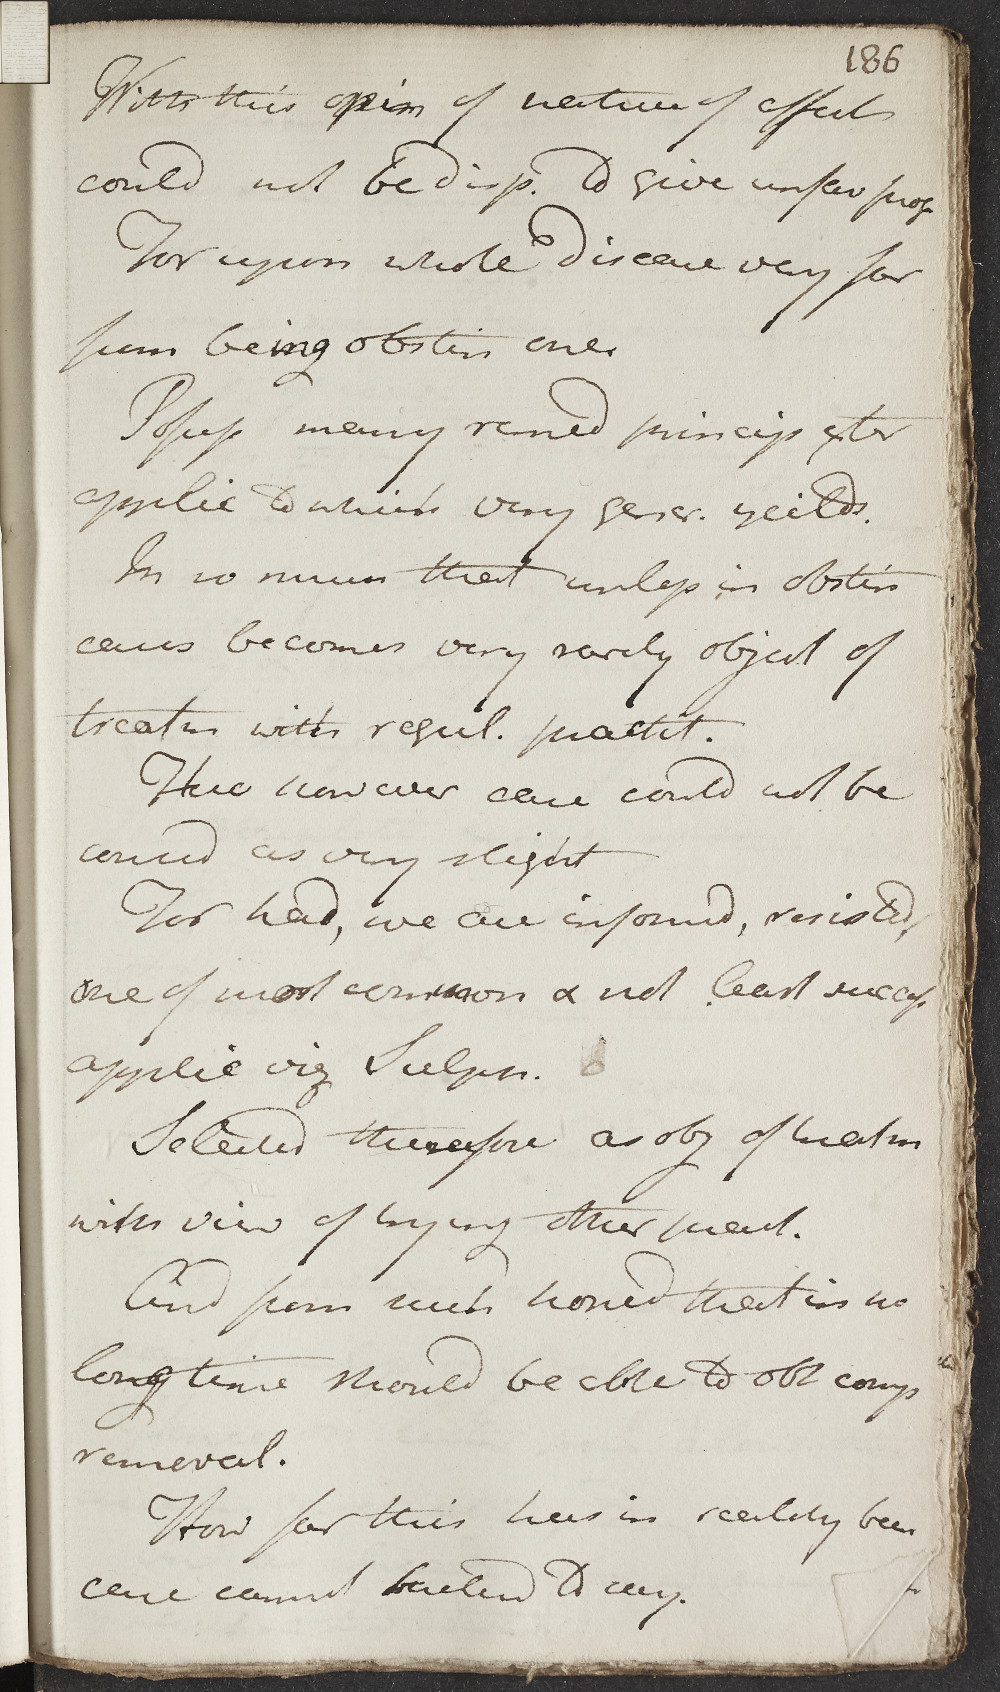 186
With this opin of nature of affect
could not be disp. to give unfav prog
For upon whole disease very far
from being obstin one
Possess many remed princip exter
applic to which very gener. yeilds.
In so much that unless in obstin
cases becomes very rarely object of
treatm with regul. practit.
Here however case could not be
consid as very slight
For had, we are informd, resisted,
one of most common & not least success
applic viz Sulph.
Selected therefore as obj of treatm
with view of trying other pract.
And from such hoped that in no
long time should be able to obt comp
removal.
How far this has in reality been
case cannot pretend to say.